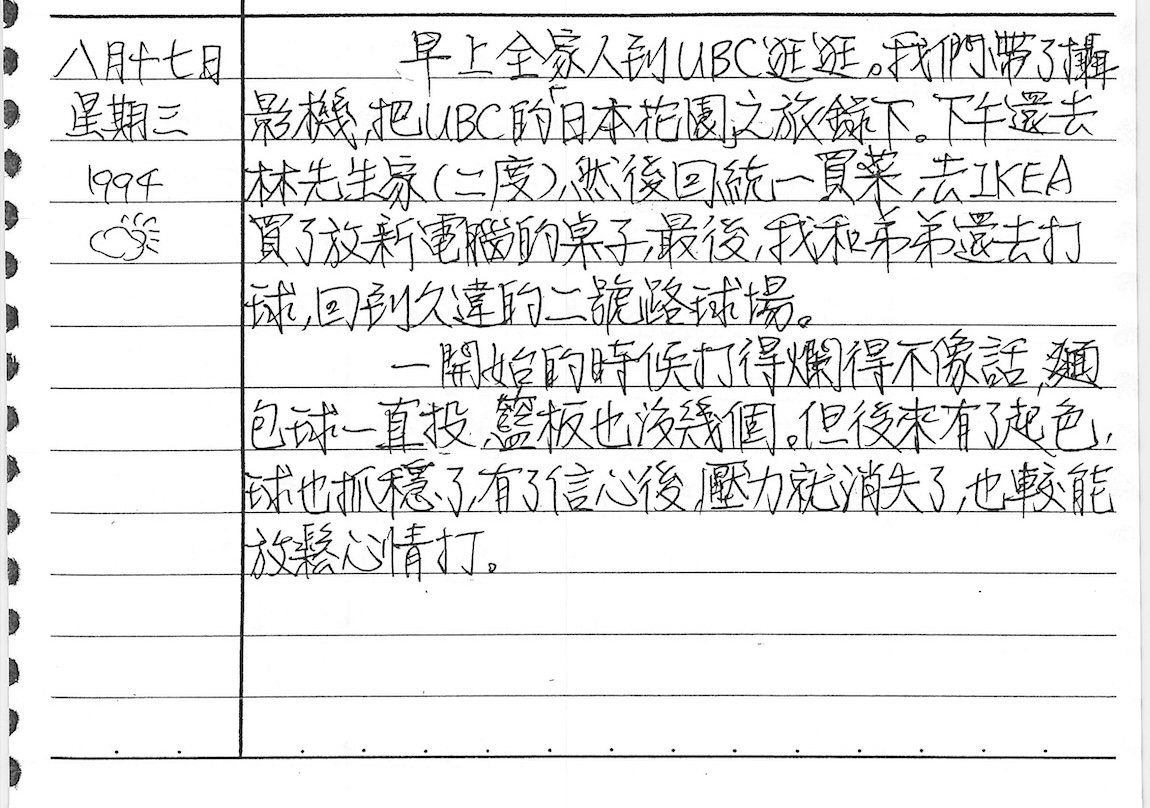 八月十七日
星期三
1994
早上全家人到UBC逛逛。我們帶了攝
影機,把UBC的「日本花園」之旅錄下。下午還去
林先生家(二度),然後回統一買菜,去IKEA
買了放新電腦的桌子,最後,我和弟弟還去打
球,回到久違的二號路球場。
一開始的時候打得爛得不像話,麵
包球一直投,籃板也沒幾個。但後來有了起色,
球也抓穩了,有了信心後,壓力就消失了,也較能
放鬆心情打。